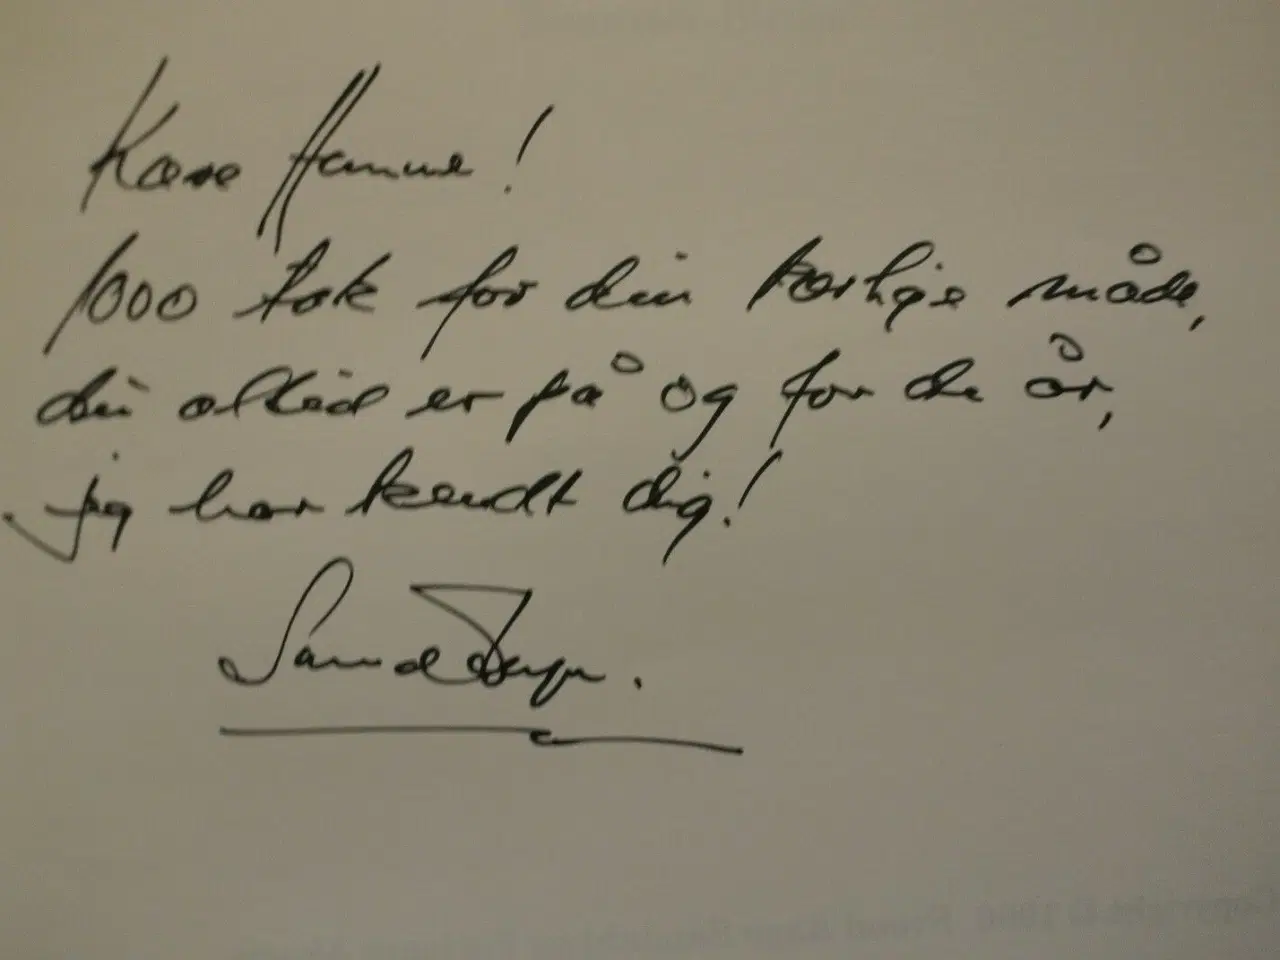 Kære Hanne!
1000 tak for din kærlige måde,
du altid er på og for de år,
jeg har kendt dig!